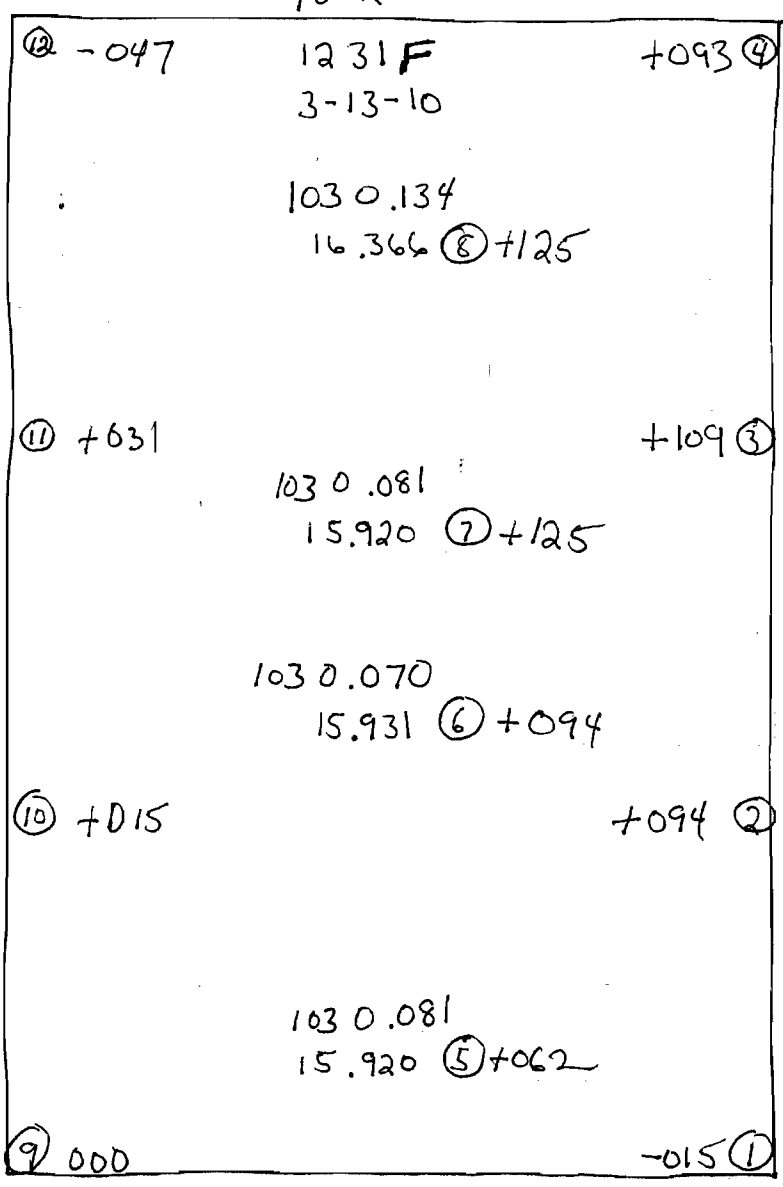 ⑫ -047 1231F +093 ④
3-13-10
1030.134
16.366 ⑧ +125
⑪ +031 +109 ③
1030.081
15.920 ⑦ +125
1030.070
15.931 ⑥ +094
⑩ +015 +094 ②
1030.081
15.920 ⑤ +062
⑨ 000 -015 ①